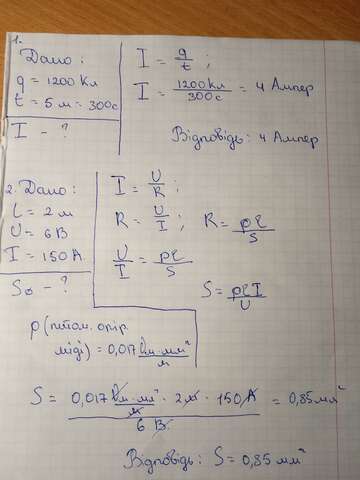 1.
Дано:
q = 1200 Кл
t = 5 м = 300 с
I - ?
I = q/t ;
I = 1200 Кл / 300 с = 4 Ампер
Відповідь: 4 Ампер
2. Дано:
l = 2 м
U = 6 В
I = 150 А
S₀ - ?
I = U/R ;
R = U/I ; R = ρl/S
U/I = ρl/S
S = ρlI/U
ρ (питом. опір
міді) = 0,017 Ом·мм²/м
S = 0,017 Ом·мм²/м · 2 м · 150 А / 6 В = 0,85 мм²
Відповідь: S = 0,85 мм²